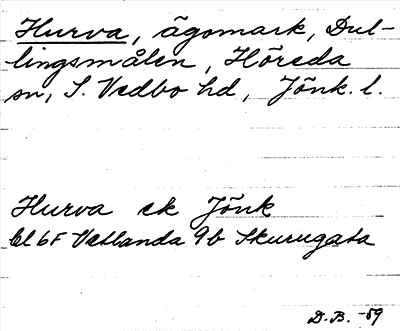 Hurva, ägomark, Dul-
lingsmålen, Höreda
sn, S. Vedbo hd, Jönk. l.
Hurva ek Jönk
bl 6F Vetlanda 9b Skurugata
D.B. -59